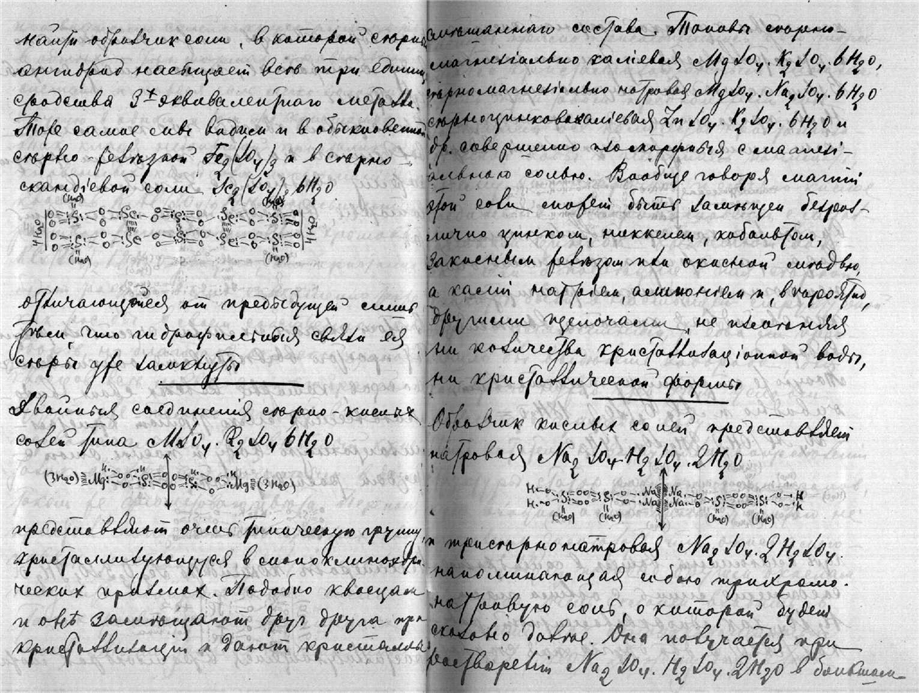 найти образчик соли, в которой сѣрный
ангидрид насыщает всѣ три единицы
сродства 3х эквивалентного металла.
Тоже самое мы видим и в обыкновенной
сѣрно-железной Fe2(SO4)3 и в сѣрно-
скандіевой соли Sc2(SO4)3 6H2O
отличающейся от предыдущей лишь
тѣм, что гидрофильныя связи ея
сѣры уже замкнуты
Двойныя соединения сѣрно-кислых
солей типа MSO4·R2SO4 6H2O
(3H2O) Mg Mg (3H2O)
представляют очень типическую группу,
кристаллизующуюся в моноклиноэдри-
ческих призмах. Подобно квасцам
и онѣ замѣщают друг друга при
кристаллизаціи и дают кристаллы
смѣшаннаго состава. Таковы сѣрно-
магнезіально каліевая MgSO4·K2SO4·6H2O,
сѣрномагнезіально натровая MgSO4·Na2SO4·6H2O
сѣрноцинковокаліевая ZnSO4·K2SO4·6H2O и
др. совершенно изоморфныя с магнезі-
альною солью. Вообще говоря магній
этой соли может быть замѣщен безраз-
лично цинком, никкелем, кобальтом,
закисным железом или окисной мѣдью,
а калій натріем, аммоніем и, вѣроятно,
другими щелочами, не измѣняя
ни количества кристаллизаціонной воды,
ни кристаллической формы
Образчик кислых солей представляет
натровая Na2SO4·H2SO4·2H2O
и трисѣрнонатровая Na2SO4·2H2SO4.
напоминающая собою трихромо-
натровую соль, о которой будет
сказано далѣе. Она получается при
растворенiи Na2SO4·H2SO4·2H2O в большом